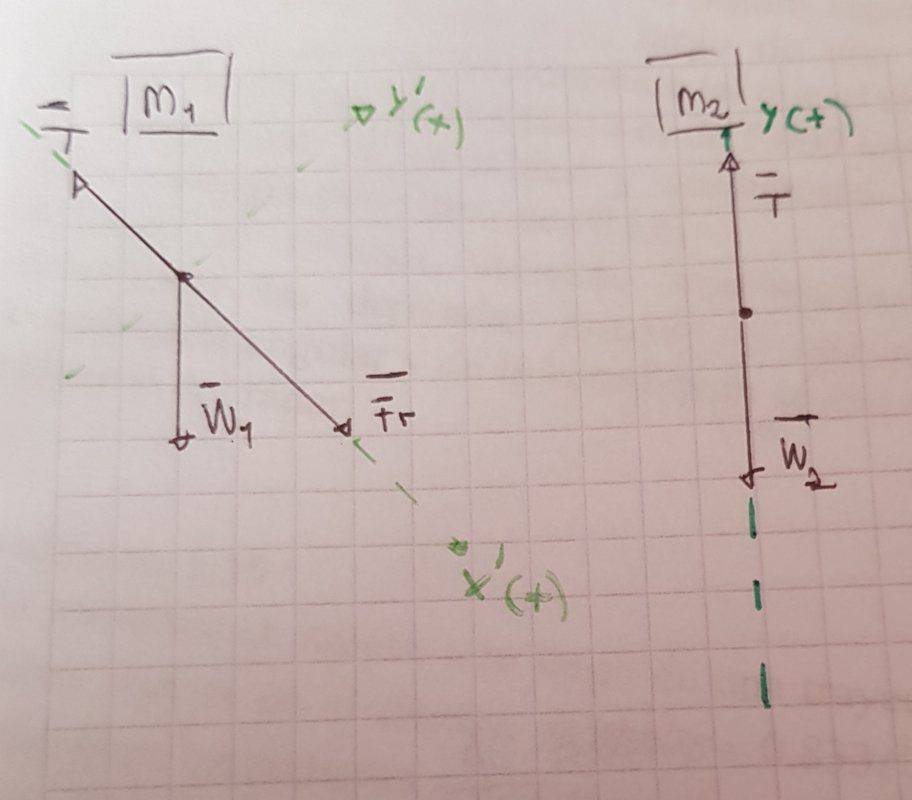 m₁
T̄
y'(+)
W̄₁
F̄r
x'(+)
m₂
y(+)
T̄
W̄₂